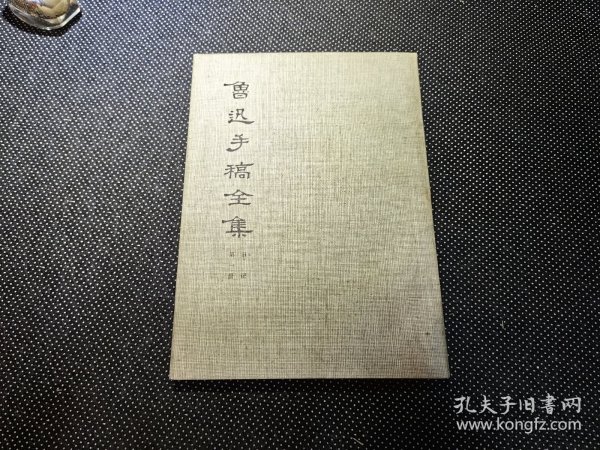 鲁迅手稿全集
孔夫子旧书网
www.kongfz.com